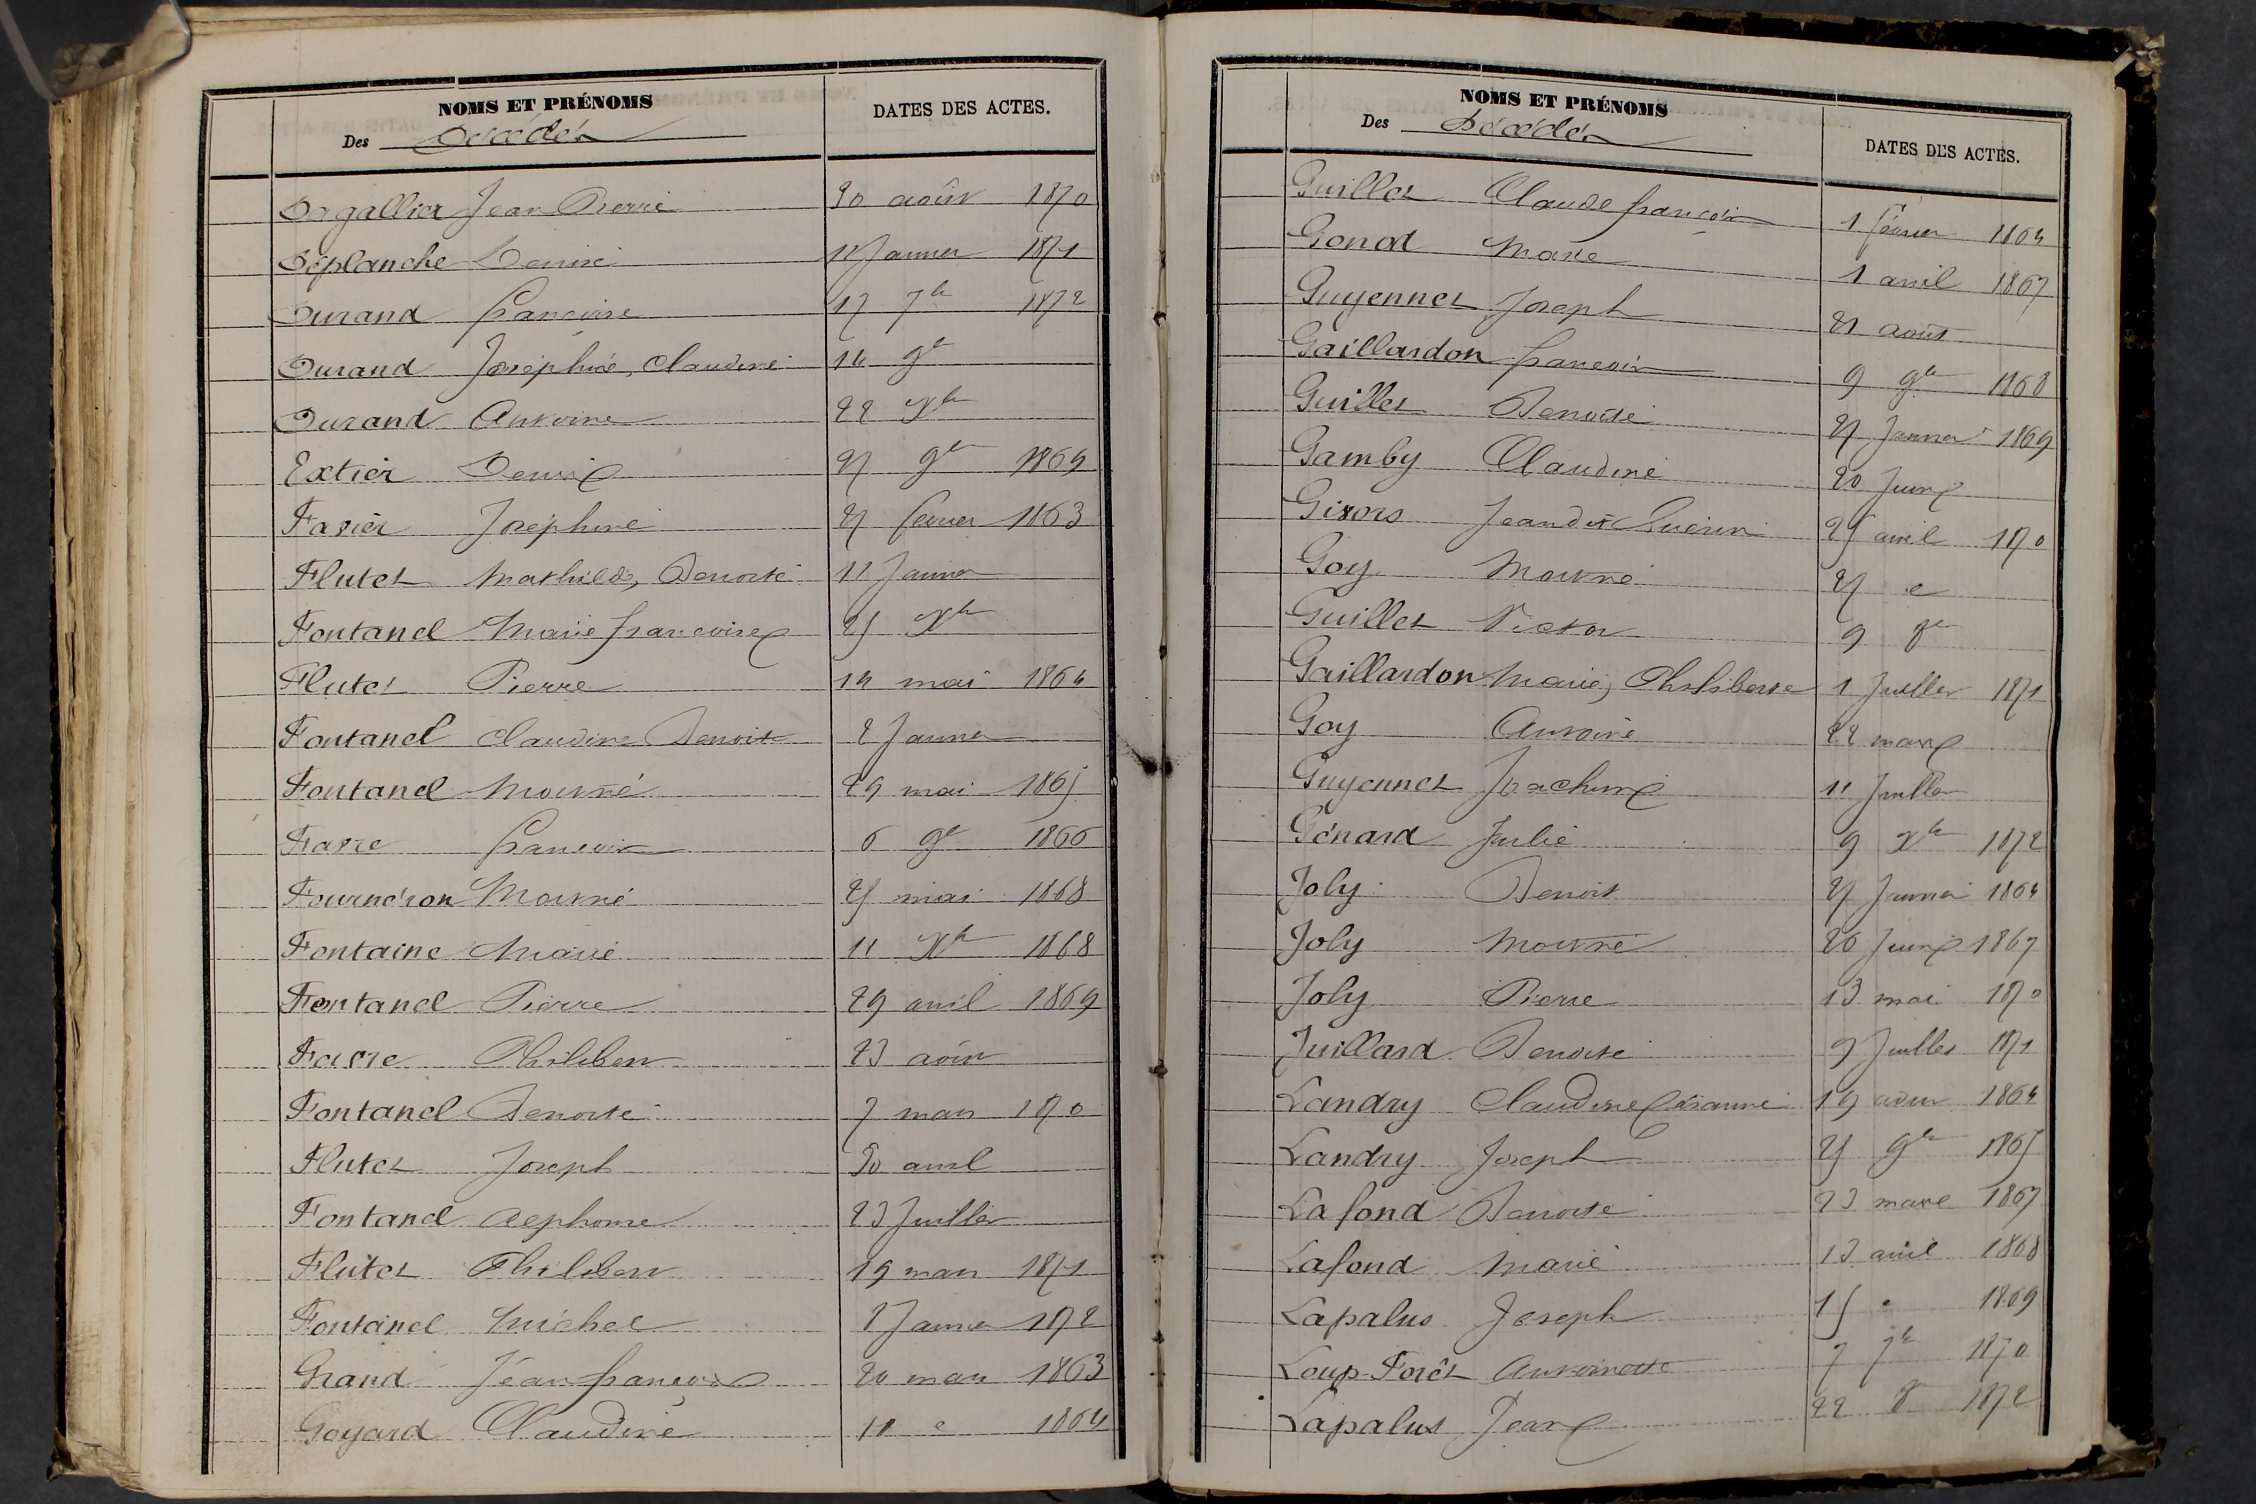 NOMS ET PRÉNOMS
Des Décédés
DATES DES ACTES.
Dagallier Jean Pierre 30 août 1870
Déplanche Denise 11 Janvier 1871
Durand françoise 17 7bre 1872
Durand Joséphine, Claudine 14 9bre
Durand Antoine 22 Xbre
Extier Denis 27 9bre 1869
Favier Joséphine 27 février 1863
Flutet Mathilde, Benoite 11 Janvier
Fontanel Marie françoise 25 Xbre
Flutet Pierre 14 mai 1864
Fontanel Claudine Benoite 2 Janvier
Fontanel Mort né 29 mai 1865
Favre françois 6 9bre 1866
Fournéron Mort né 25 mai 1868
Fontaine Marie 11 Xbre 1868
Fontanel Pierre 29 avril 1869
Favre Philibert 23 août
Fontanel Benoite 7 mars 1870
Flutet Joseph 30 avril
Fontanel Alphonse 23 Juillet
Flutet Philibert 19 mars 1871
Fontanel Michel 2 Janvier 1872
Grand Jean françois 20 mars 1863
Goyard Claudine 11 " 1864
NOMS ET PRÉNOMS
Des Décédés
DATES DES ACTES.
Guillet Claude françois 1 février 1864
Gonod Marie 1 avril 1867
Guyennet Joseph 21 août
Gaillardon françois 9 9bre 1868
Guillet Benoite 27 Janvier 1869
Gamby Claudine 20 Juin
Gixors Jean dit Guérin 25 avril 1870
Goy Mort né 27 "
Guillet Victor 9 8bre
Gaillardon Marie, Philiberte 1 Juillet 1871
Goy Antoine 22 mars
Guyennet Joachim 11 Juillet
Génard Julie 9 Xbre 1872
Joly Benoit 27 Janvier 1864
Joly Mort né 26 Juin 1867
Joly Pierre 13 mai 1870
Juillard Benoite 9 Juillet 1871
Landry Claudine 19 août 1864
Landry Joseph 25 9bre 1865
Lafond Benoite 23 mars 1867
Lafond Marie 13 avril 1868
Lapalus Joseph 15 " 1869
Loup-Forêt Antoinette 7 7bre 1870
Lapalus Jean 22 8bre 1872